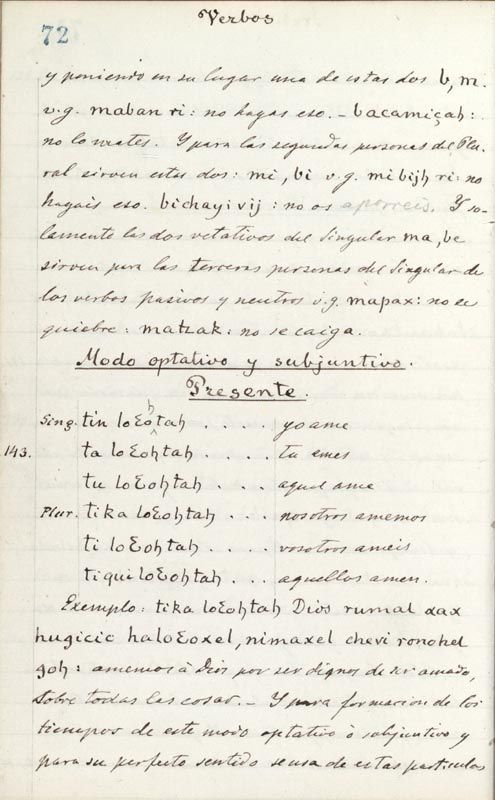 72
Verbos
y poniendo en su lugar una de estas dos b, m.
v.g. maban ri: no hagas eso. - bacamiçaḥ:
no lo mates. Y para las segundas personas del Plu-
ral sirven estas dos: mi, bi v.g. mi bijḥ ri: no
hagais eso. bichayi vij: no os aporreis. Y so-
lamente las dos vetativos del Singular ma, be
sirven para las terceras personas del Singular de
los verbos pasivos y neutros v.g. mapax: no se
quiebre: matzak: no se caiga.
Modo optativo y subjuntivo.
Presente.
Sing. tin loɛoḥtaḥ .... yo ame
143. ta loɛoḥtaḥ .... tu ames
tu loɛoḥtaḥ ... aquel ame
Plur. tika loɛoḥtaḥ ... nosotros amemos
ti loɛoḥtaḥ .... vosotros ameis
tiqui loɛoḥtaḥ ... aquellos amen.
Exemplo: tika loɛoḥtaḥ Dios rumal xax
hugicic haloɛoxel, nimaxel chevi ronohel
goḥ: amemos à Dios por ser dignos de ser amado,
sobre todas las cosas. - Y para formacion de los
tiempos de este modo optativo ò subjuntivo y
para su perfecto sentido se usa de estas particulas